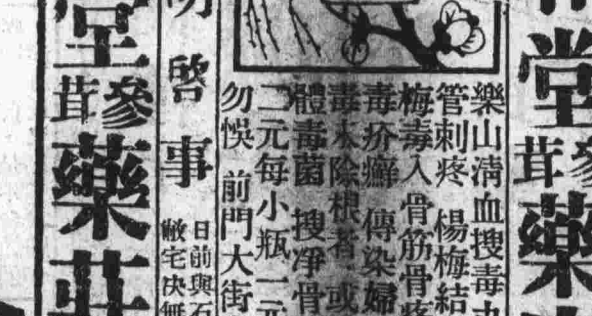 堂
參茸
藥
樂山清血搜毒丸
管刺疼 楊梅結
梅毒入骨筋骨疼
毒疥癬 傳染婦
毒未除根者 或
體毒菌 搜净骨
二元每小瓶一元
勿悞 前門大街
啓事
日前與石
敝宅决無
堂
參茸
藥莊